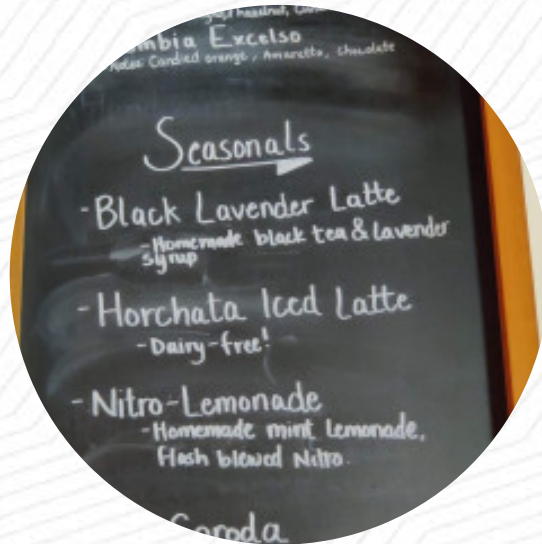 hazelnut,
Excelso
Notes: Candied orange, Amaretto, Chocolate
Seasonals
-Black Lavender Latte
-Homemade black tea & lavender
syrup
-Horchata Iced Latte
-Dairy-free!
-Nitro-Lemonade
-Homemade mint lemonade,
Flash blewed Nitro.